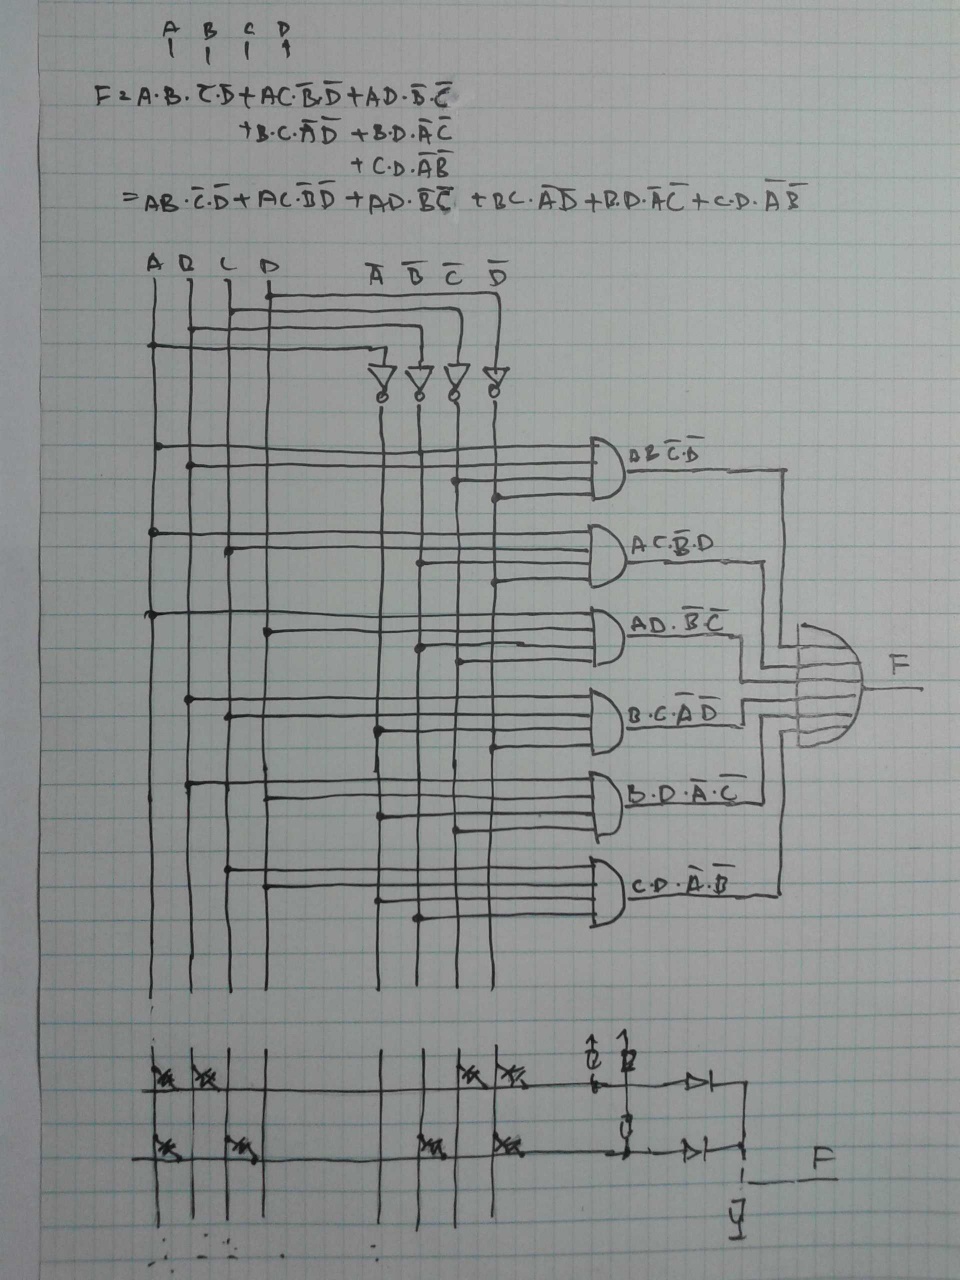 A B C D
F = A·B·C̅·D̅ + AC·B̅·D̅ + AD·B̅·C̅
+ B·C·A̅D̅ + B·D·A̅C̅
+ C·D·A̅B̅
= AB·C̅·D̅ + AC·B̅D̅ + AD·B̅C̅ + BC·A̅D̅ + B·D·A̅C̅ + C·D·A̅B̅
A B C D A̅ B̅ C̅ D̅
AB C̅·D̅
AC·B̅·D
AD·B̅·C̅
F
B·C·A̅D̅
B·D·A̅·C̅
C·D·A̅·B̅
F